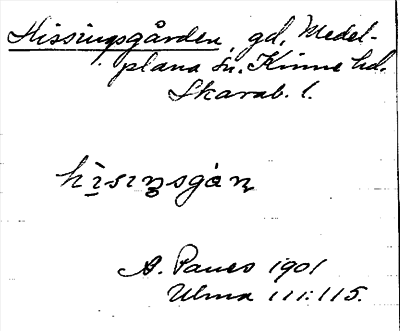 Hissingsgården, gd, Medel-
plana sn. Kinne hd.
Skarab. l.
hisiŋsgåṇ
A. Paues 1901
Ulma 111:115.